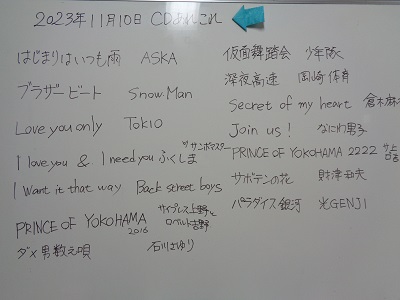 2023年11月10日 CDあれこれ
はじまりはいつも雨 ASKA
ブラザービート Snow.Man
Love you only TOKIO
I love you & I need you ふくしま ザ サンボマスター
I want it that way Back street boys
PRINCE OF YOKOHAMA 2016 サイプレス上野と ロベルト吉野
ダメ男数え唄 石川さゆり
仮面舞踏会 少年隊
深夜高速 岡崎体育
Secret of my heart 倉木麻衣
Join us! なにわ男子
PRINCE OF YOKOHAMA 2222 サ上
サボテンの花 財津和夫
パラダイス銀河 光GENJI